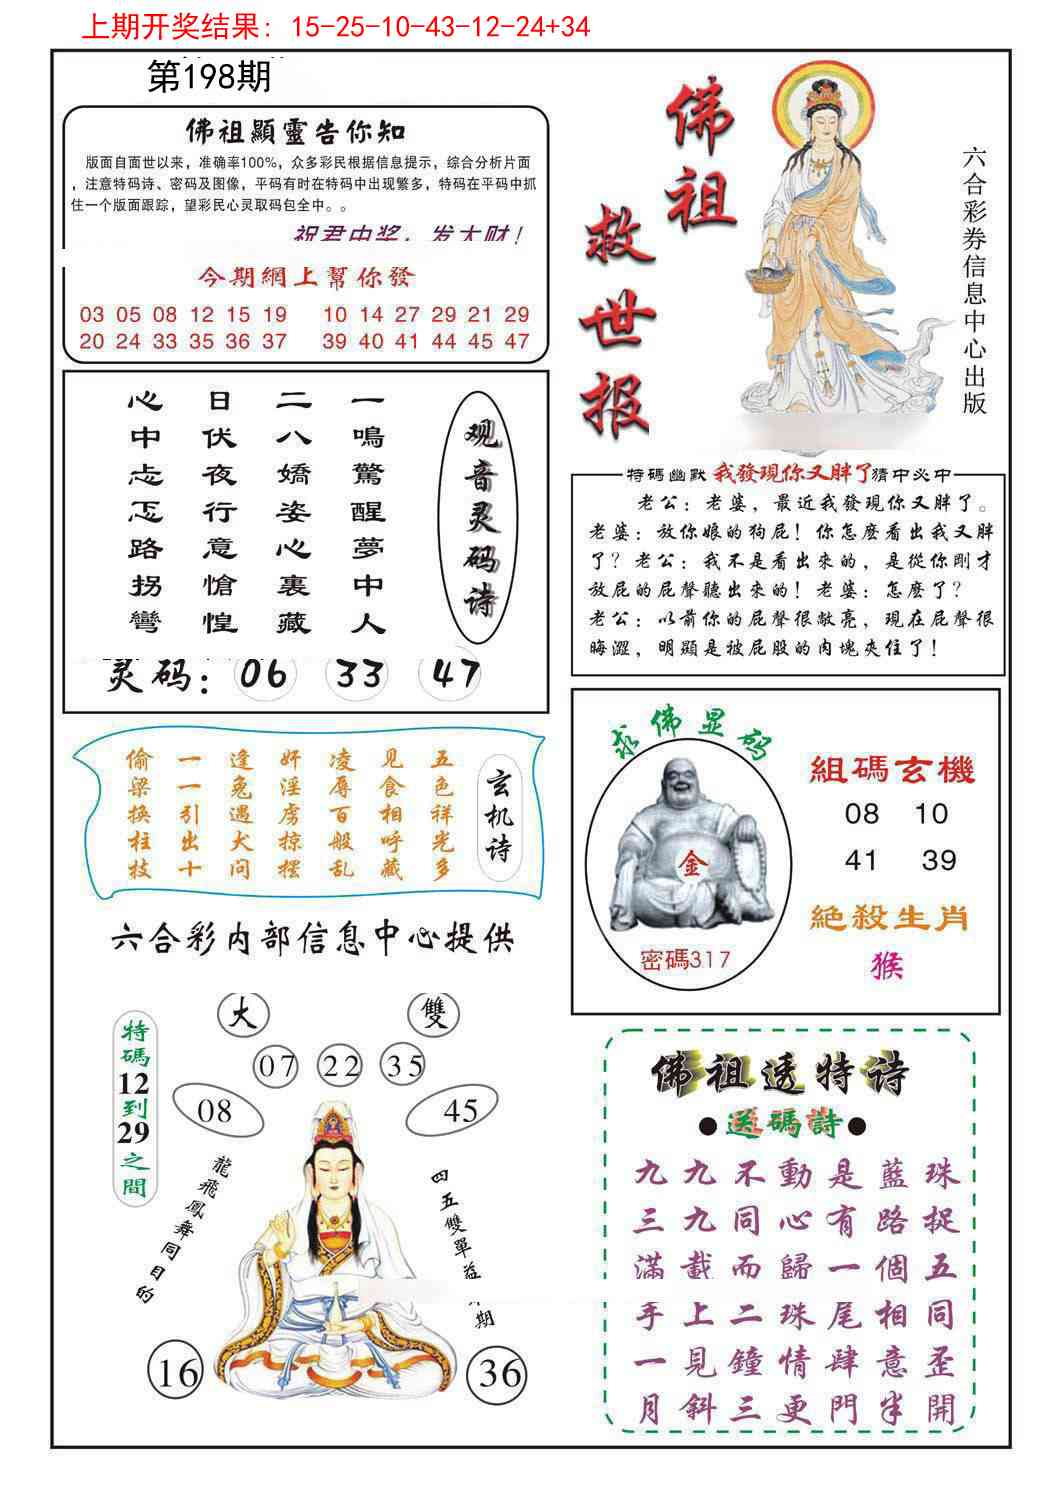 上期开奖结果：15-25-10-43-12-24+34
第198期
佛祖顯靈告你知
版面自面世以来，准确率100%，众多彩民根据信息提示，综合分析片面
，注意特码诗、密码及图像，平码有时在特码中出现繁多，特码在平码中抓
住一个版面跟踪，望彩民心灵取码包全中。。
祝君中奖，发大财！
今期網上幫你發
03 05 08 12 15 19 10 14 27 29 21 29
20 24 33 35 36 37 39 40 41 44 45 47
佛祖
救世报
六合彩券信息中心出版
观音灵码诗
一鳴驚醒夢中人
二八嬌姿心裏藏
日伏夜行意愴惶
心中忐忑路拐彎
灵码：06 33 47
特碼幽默 我發現你又胖了 猜中必中
老公：老婆，最近我發現你又胖了。
老婆：放你娘的狗屁！你怎麽看出我又胖
了？老公：我不是看出來的，是從你剛才
放屁的屁聲聽出來的！老婆：怎麽了？
老公：以前你的屁聲很敞亮，現在屁聲很
晦澀，明顯是被屁股的肉塊夾住了！
玄机诗
五色祥光多
见食相呼藏
凌辱百般乱
奸淫虏掠摆
逢兔遇犬问
一一引出十
偷梁换柱技
求佛显码
金
密碼317
組碼玄機
08 10
41 39
絕殺生肖
猴
六合彩内部信息中心提供
大 雙
07 22 35
08 45
特碼12到29之間
龍飛鳳舞同目的
四五雙單益 期
16 36
佛祖透特诗
●送碼詩●
九九不動是藍珠
三九同心有路捉
滿載而歸一個五
手上二珠尾相同
一見鐘情肆意歪
月斜三更門半開